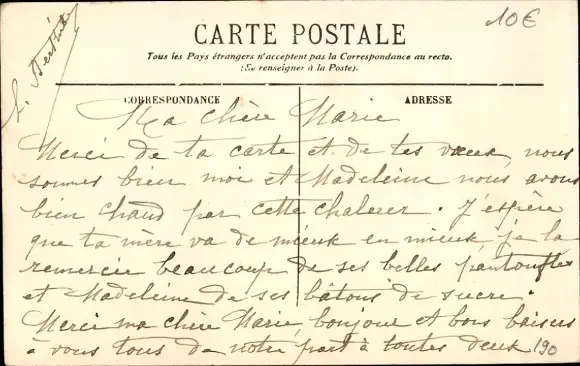 10€
CARTE POSTALE
Tous les Pays étrangers n'acceptent pas la Correspondance au recto.
(Se renseigner à la Poste).
CORRESPONDANCE
ADRESSE
Ma chère Marie
Merci de ta carte et de tes vœux, nous
sommes bien moi et Madeleine nous avons
bien chaud par cette chaleur. J'espère
que ta mère va de mieux en mieux, je la
remercie beaucoup de ses belles pantoufles
et Madeleine de ses bâtons de sucre.
Merci ma chère Marie, bonjour et bons baisers
à vous tous de notre part à toutes deux
190